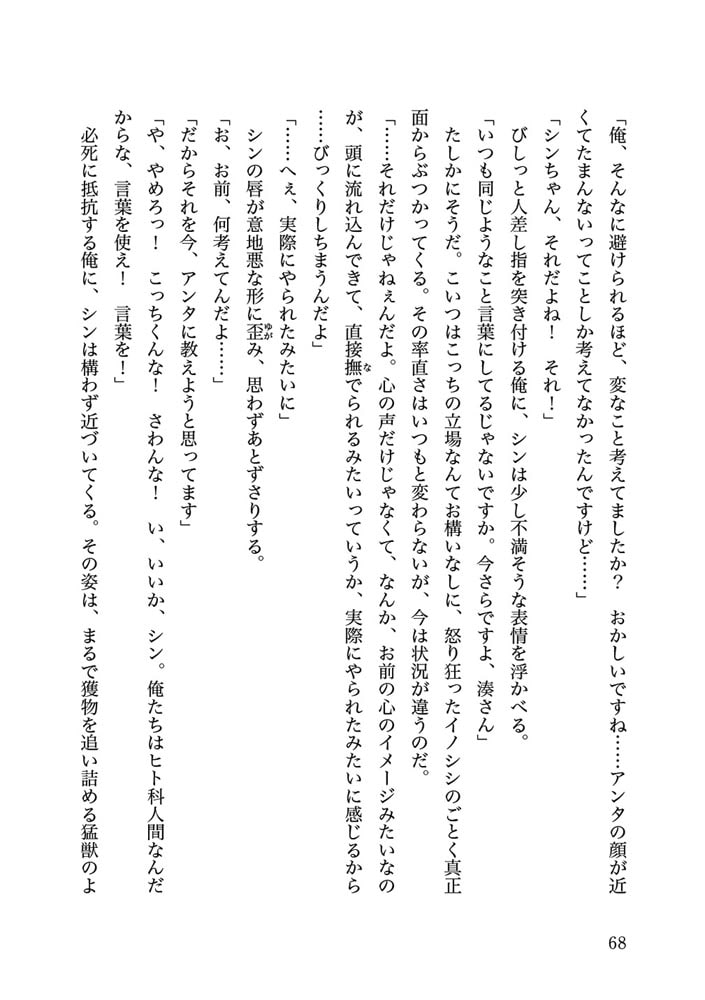 「俺、そんなに避けられるほど、変なこと考えてましたか？　おかしいですね……アンタの顔が近
くてたまんないってことしか考えてなかったんですけど……」
「シンちゃん、それだよね！　それ！」
びしっと人差し指を突き付ける俺に、シンは少し不満そうな表情を浮かべる。
「いつも同じようなこと言葉にしてるじゃないですか。今さらですよ、湊さん」
たしかにそうだ。こいつはこっちの立場なんてお構いなしに、怒り狂ったイノシシのごとく真正
面からぶつかってくる。その率直さはいつもと変わらないが、今は状況が違うのだ。
「……それだけじゃねぇんだよ。心の声だけじゃなくて、なんか、お前の心のイメージみたいなの
が、頭に流れ込んできて、直接撫でられるみたいっていうか、実際にやられたみたいに感じるから
……びっくりしちまうんだよ」
「……へぇ、実際にやられたみたいに」
シンの唇が意地悪な形に歪み、思わずあとずさりする。
「お、お前、何考えてんだよ……」
「だからそれを今、アンタに教えようと思ってます」
「や、やめろっ！　こっちくんな！　さわんな！　い、いいか、シン。俺たちはヒト科人間なんだ
からな、言葉を使え！　言葉を！」
必死に抵抗する俺に、シンは構わず近づいてくる。その姿は、まるで獲物を追い詰める猛獣のよ
68